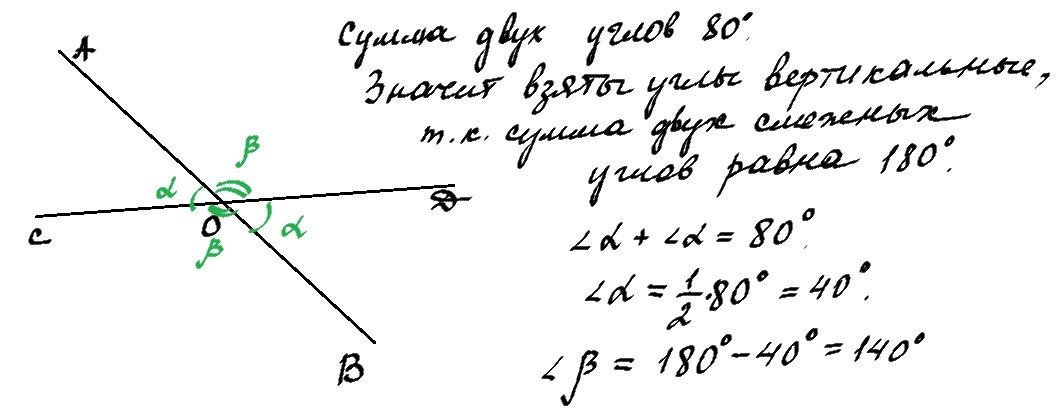 Сумма двух углов 80°.
Значит взяты углы вертикальные,
т.к. сумма двух смежных
углов равна 180°.
∠α + ∠α = 80°.
∠α = 1/2 · 80° = 40°.
∠β = 180° - 40° = 140°
A
β
α
D
C
O
α
β
B